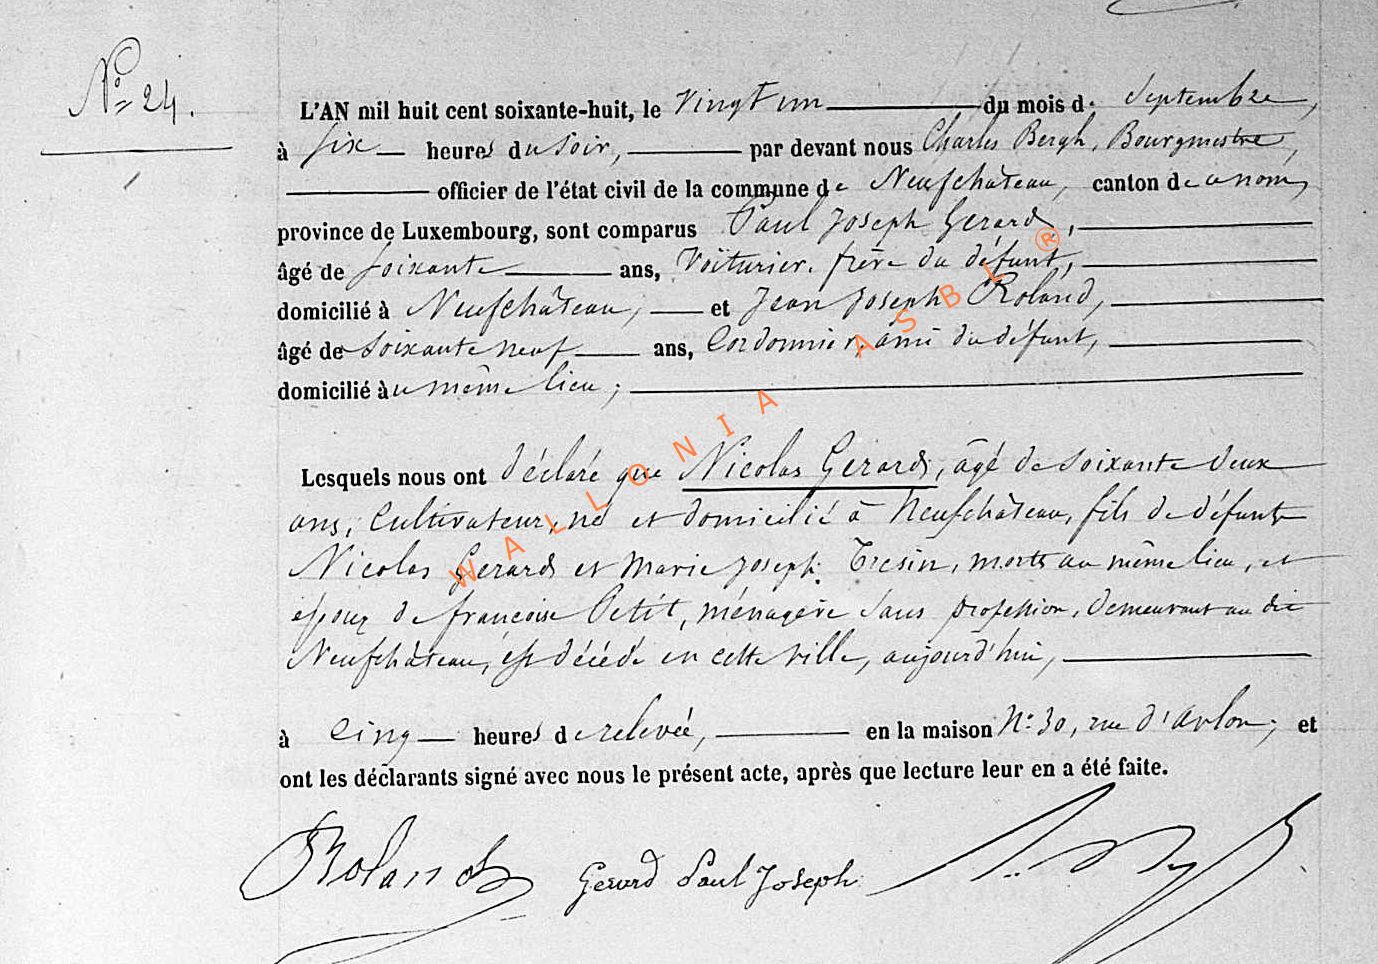 N° 24.
L'AN mil huit cent soixante-huit, le vingt un du mois de Septembre,
à six heures du soir, par devant nous Charles Bergh, Bourgmestre,
officier de l'état civil de la commune de Neufchâteau, canton de ce nom,
province de Luxembourg, sont comparus Paul Joseph Gerard,
âgé de soixante ans, Voiturier, frère du défunt,
domicilié à Neufchâteau, et Jean Joseph Roland,
âgé de soixante neuf ans, Cordonnier, ami du défunt,
domicilié au même lieu;
Lesquels nous ont déclaré que Nicolas Gerard, âgé de soixante deux
ans, Cultivateur, né et domicilié à Neufchâteau, fils de défunts
Nicolas Gerard et Marie Joseph Tresin, morts au même lieu, et
époux de françoise Petit, ménagère sans profession, demeurant au dit
Neufchâteau, est décédé en cette ville, aujourd'hui,
à Cinq heures de relevée, en la maison N° 30, rue d'Arlon; et
ont les déclarants signé avec nous le présent acte, après que lecture leur en a été faite.
Roland Gerard Paul Joseph
WALLONIA ASBL ®